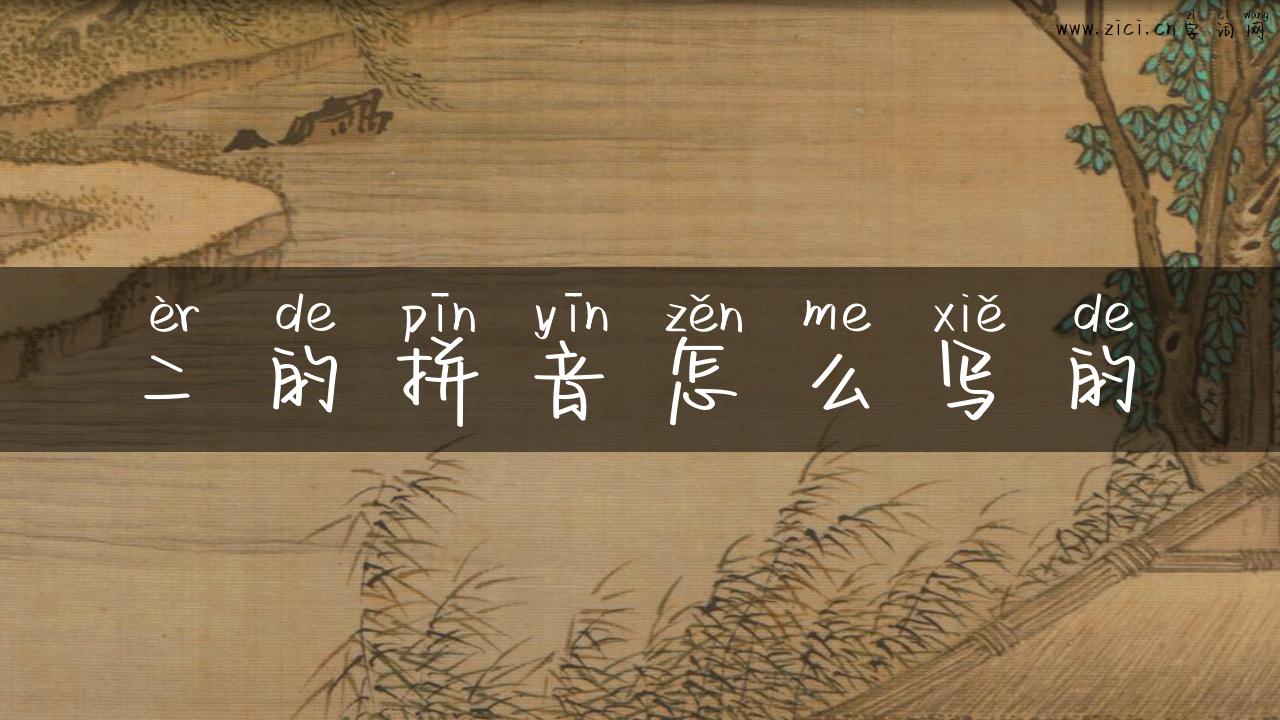 zì cí wǎng
www.zici.cn字词网
èr de pīn yīn zěn me xiě de
二的拼音怎么写的